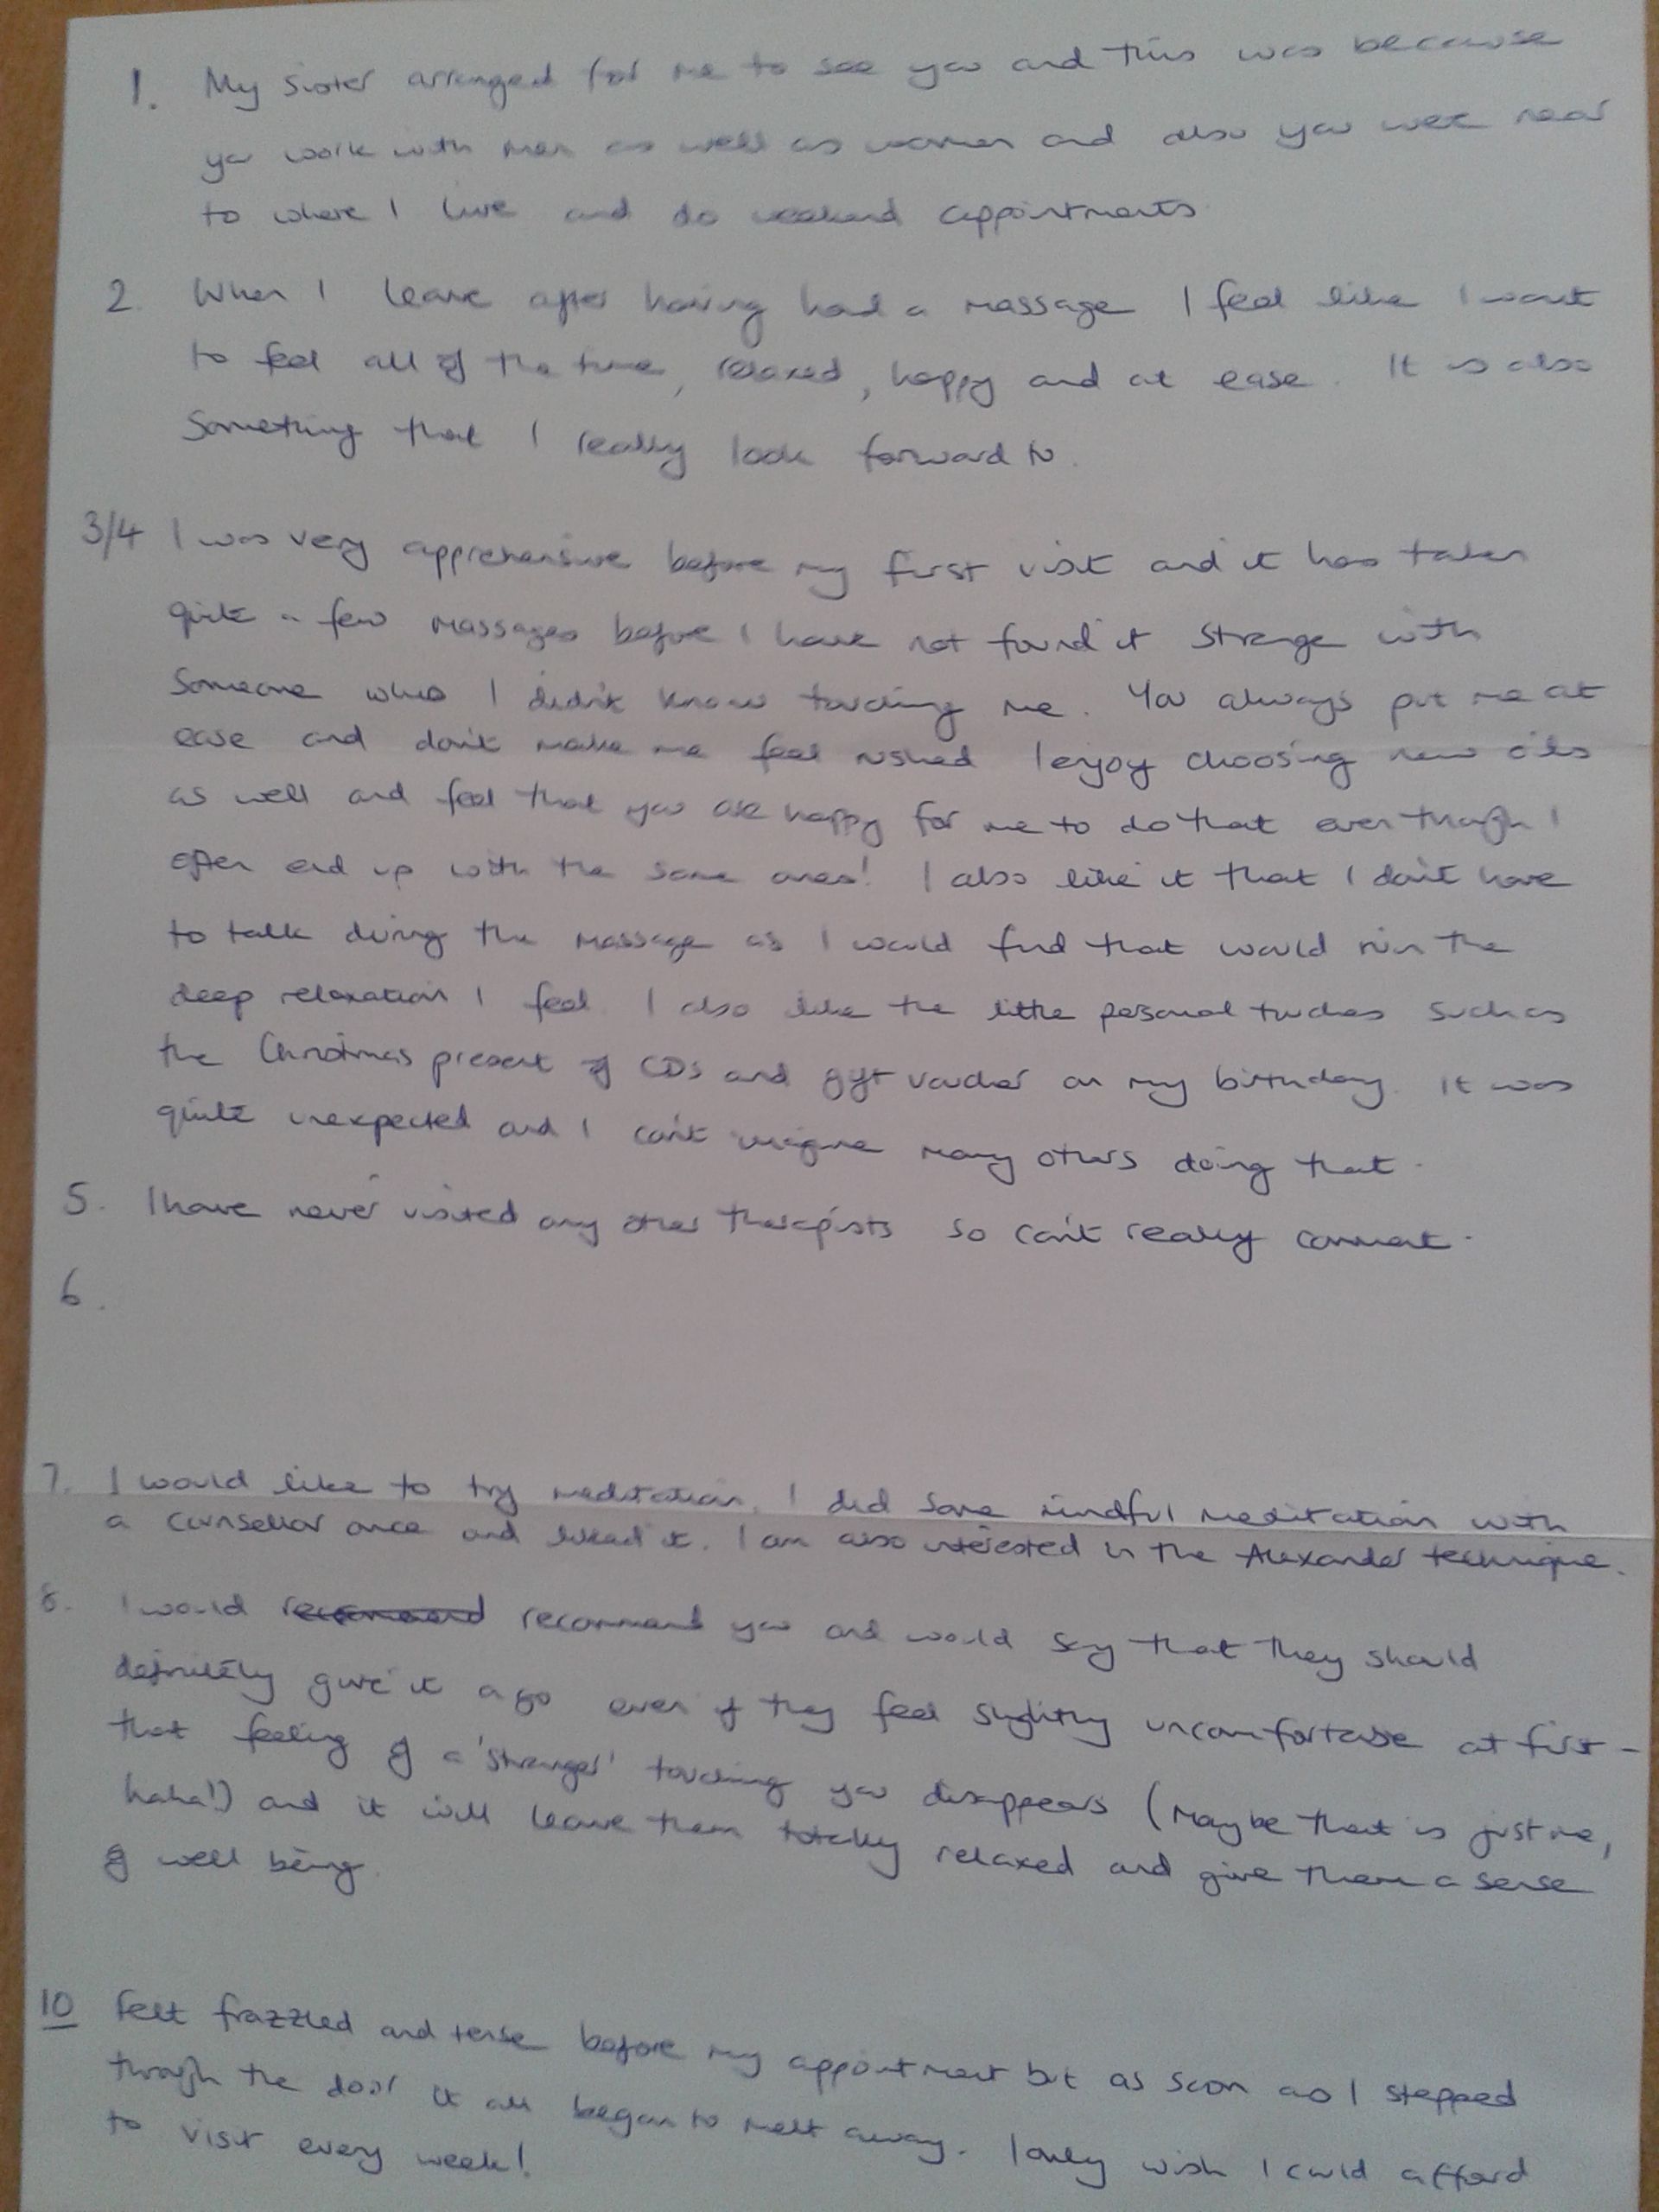 1. My sister arranged for me to see you and this was because
you work with men as well as women and also you were near
to where I live and do weekend appointments
2. When I leave after having had a massage I feel like I want
to feel all of the time, relaxed, happy and at ease. It is also
something that I really look forward to.
3/4 I was very apprehensive before my first visit and it has taken
quite a few massages before I have not found it strange with
someone who I didn't know touching me. You always put me at
ease and don't make me feel rushed I enjoy choosing new oils
as well and feel that you are happy for me to do that even though I
often end up with the same ones! I also like it that I don't have
to talk during the massage as I would find that would ruin the
deep relaxation I feel. I also like the little personal touches such as
the Christmas present of CDs and gift voucher on my birthday. It was
quite unexpected and I can't imagine many others doing that.
5. I have never visited any other therapists so can't really comment.
6.
7. I would like to try meditation. I did some mindful meditation with
a counsellor once and liked it. I am also interested in the Alexander technique.
8. I would recommend recommend you and would say that they should
definitely give it a go even if they feel slightly uncomfortable at first -
that feeling of a 'stranger' touching you disappears (maybe that is just me,
haha!) and it will leave them totally relaxed and give them a sense
of well being.
10 Felt frazzled and tense before my appointment but as soon as I stepped
through the door it all began to melt away. I only wish I could afford
to visit every week!